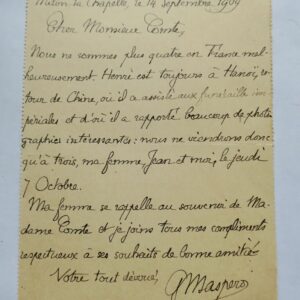 Milon la Chapelle, le 14 septembre 1909
Cher Monsieur Comte,
Nous ne sommes plus quatre en France mal-
heureusement. Henri est toujours à Hanoï, re-
tour de Chine, où il a assisté aux funérailles im-
périales et d'où il a rapporté beaucoup de photo-
graphies intéressantes : nous ne viendrons donc
qu'à trois, ma femme, Jean et moi, le jeudi
7 Octobre.
Ma femme se rappelle au souvenir de Ma-
dame Comte et je joins tous mes compliments
respectueux à ses souhaits de bonne amitié.
Votre tout dévoué,
G Maspero